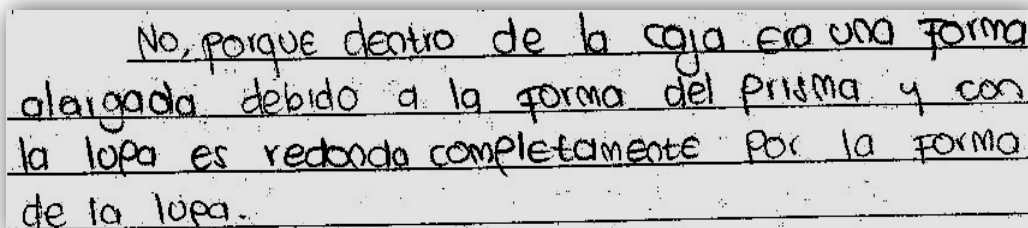 No, porque dentro de la caja era una forma
alargada debido a la forma del prisma y con
la lupa es redonda completamente por la forma
de la lupa.